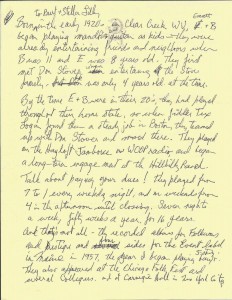 to Burt + Stella Lilly
Born in the early 1920s Clear Creek WV, E + B
began playing as kids + they were
already entertaining friends and neighbors when
B was 11 and E was 8 years old. They first
met Don Stover entertaining the Stover
family, was only 4 years old at the time.
By the time E + B were in their 20s, they had played
throughout their home state, so when fiddler Tex
Logan found them a steady job in Boston they teamed
up with Don Stover and moved there. They played
on the Hayloft Jamboree on WCOP radio and began
a long-term engagement at the Hillbilly Ranch.
Talk about paying your dues! They played from
7 to 1 every weekday night, and on weekends from
4 in the afternoon until closing. Seven nights
a week, fifty weeks a year for 16 years
And that's not all - they recorded albums for Folkways
and Prestige and sides for the Event label
in Maine in 1957, the year B began playing
They also appeared at the Chicago Folk Fest and
several Colleges. at Carnegie hall in New York City